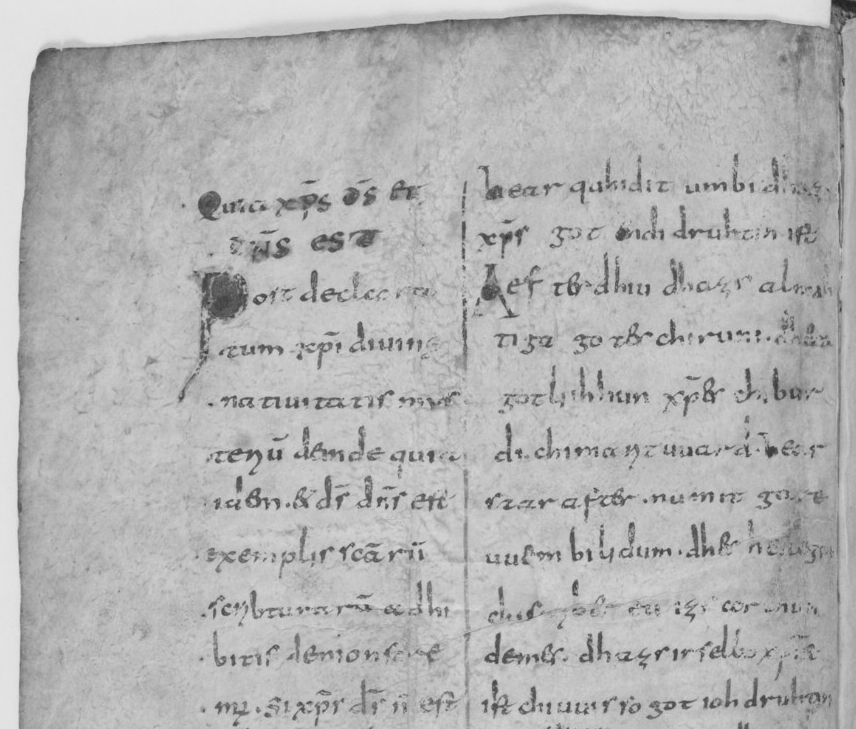 Quia xp̄s d̄s et
dn̄s est
Post declara
tum xp̄i diuinę
natiuitatis mys
teriū deinde quia
idem & d̄s dn̄s est
exemplis scārū
scribturarū adhi
bitis demonstre
mꝰ. Si xp̄s d̄s n̄ est
hear quhidit umbi dhazs
xp̄s got endi druhtin ist
Aefter dhiu dhazs almah
tiga gotes chiruni. dhera
gotliihhun xp̄es chibur
di. chimarit uuard. hear
star after. nu mit gareuem
uuem bilidum. dhes heilegin
chiscribes eu izs archun
demes. dhazs ir selbo xp̄s
ist chiuuisso got ioh druhtin